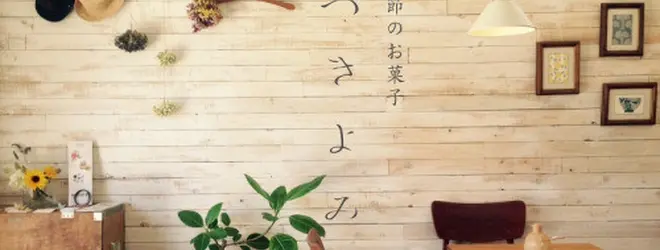 節のお菓子
つきよみ